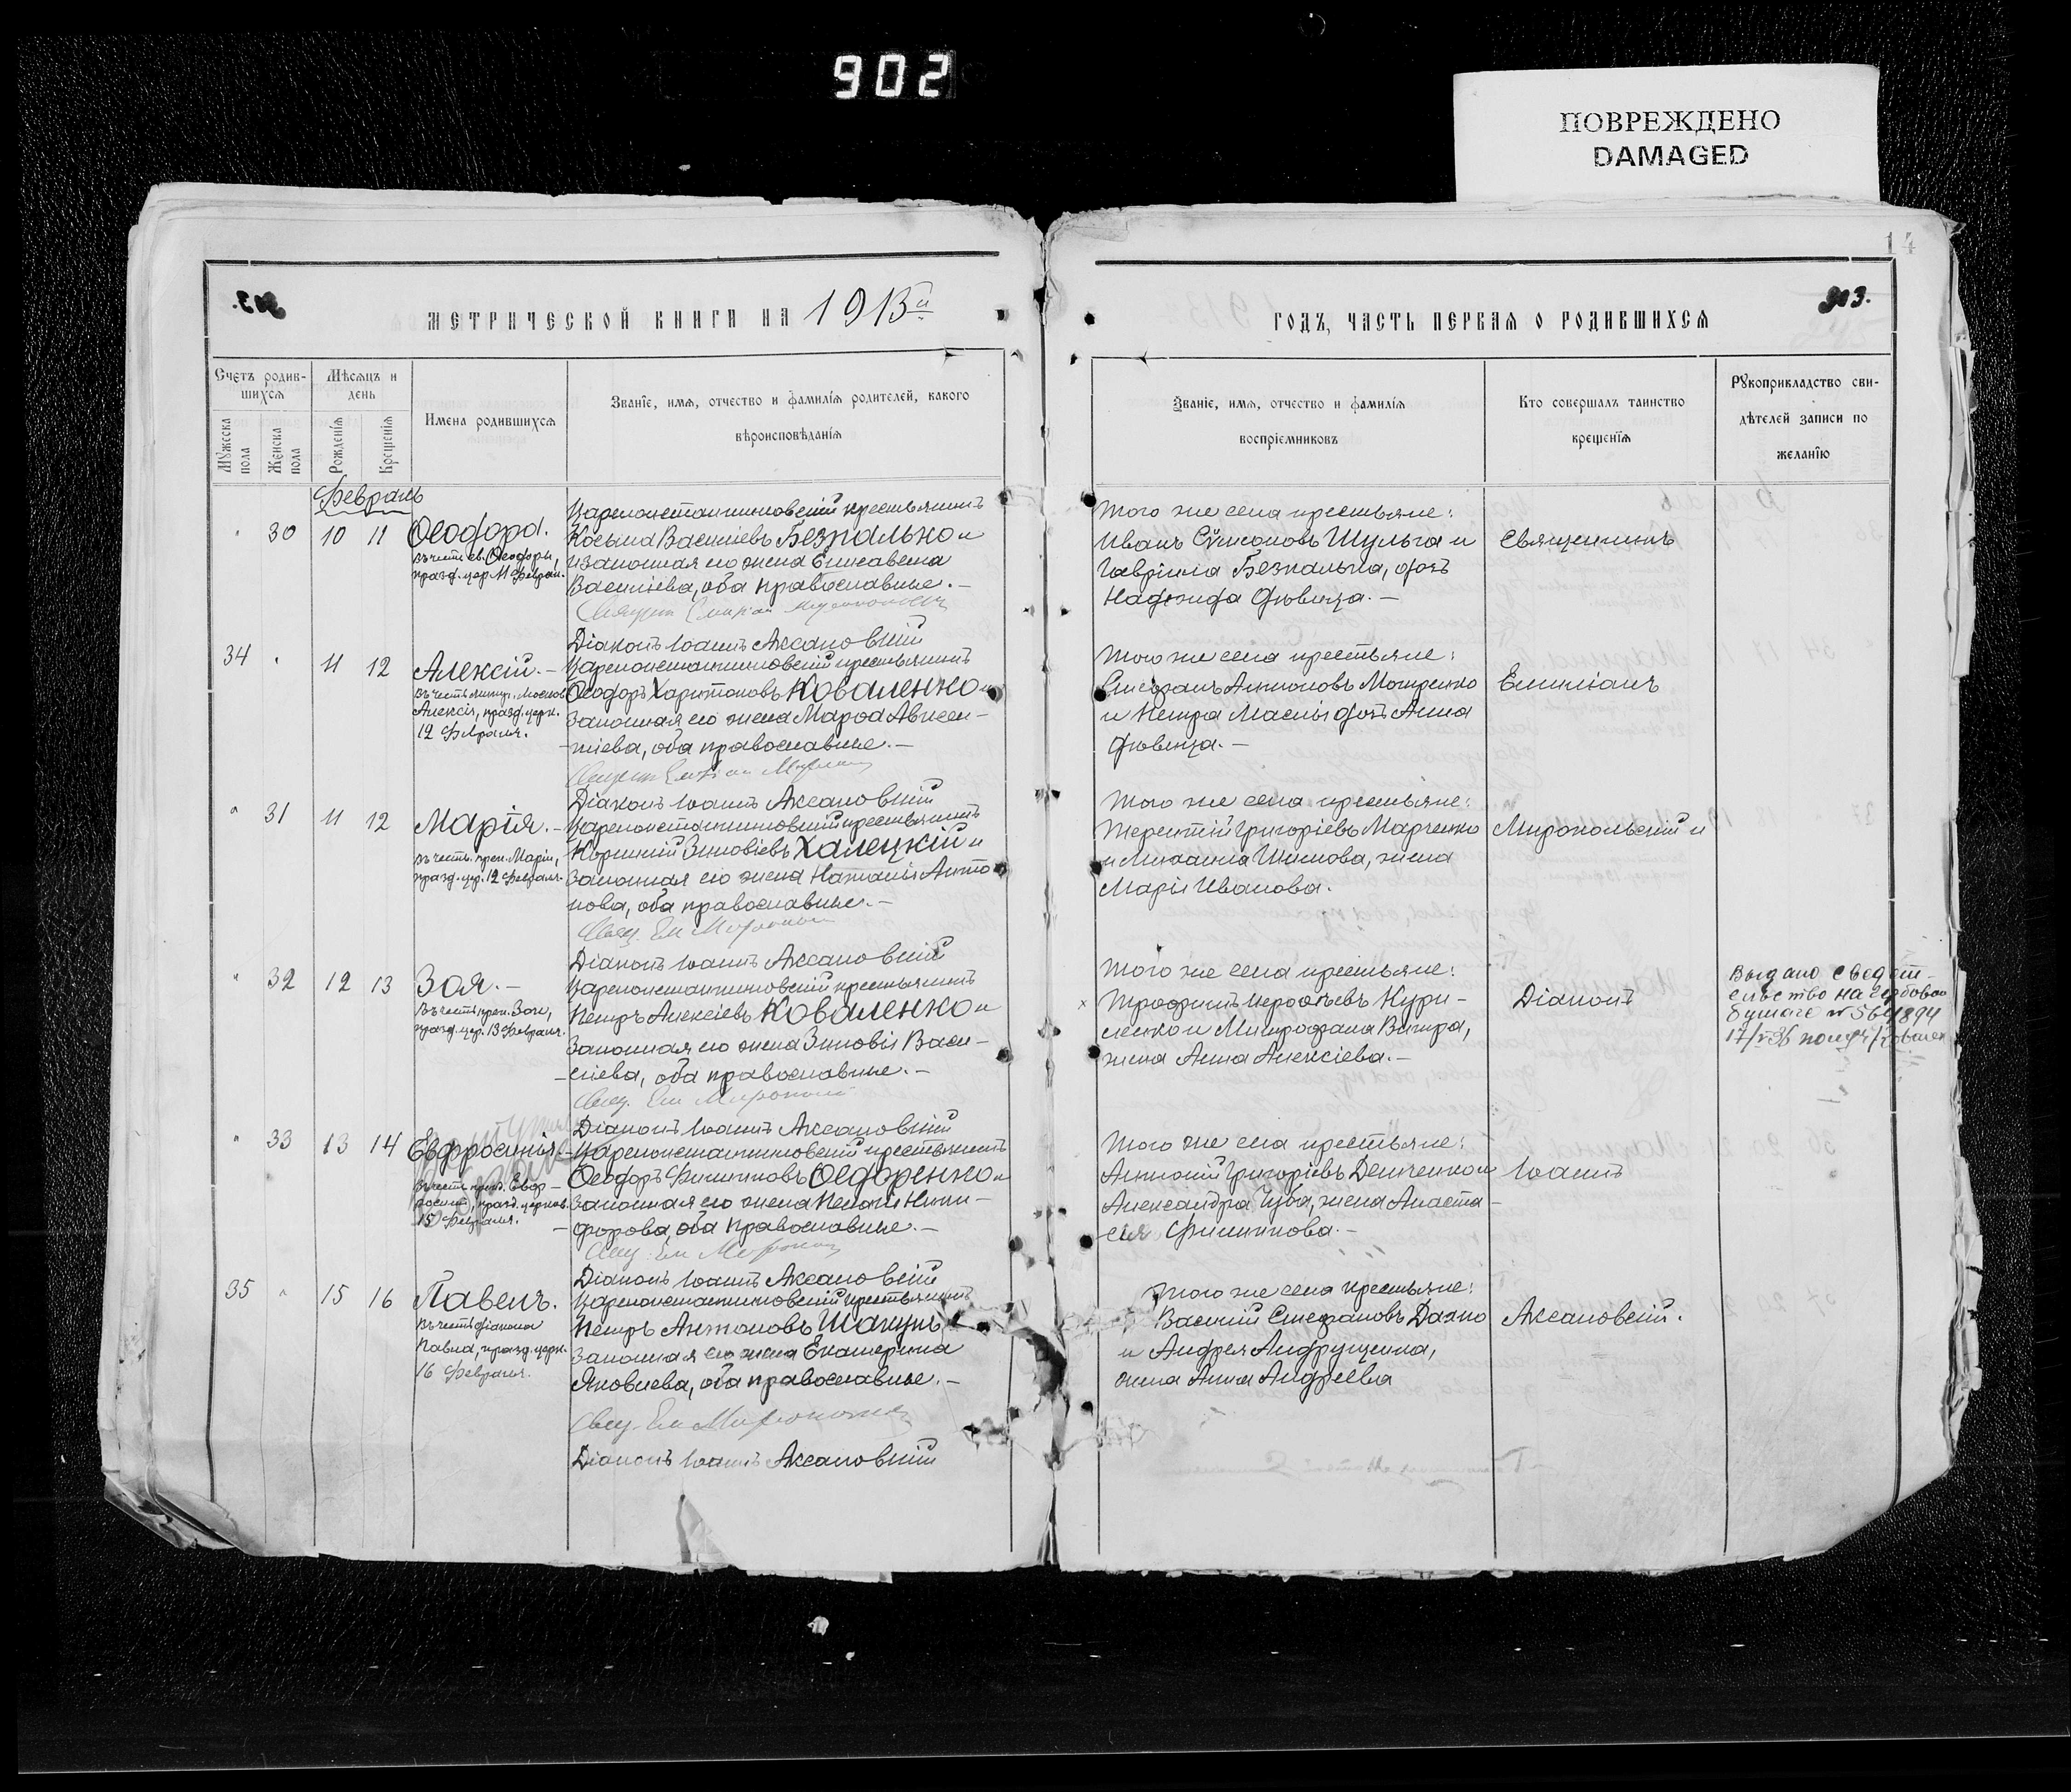 902
ПОВРЕЖДЕНО
DAMAGED
14
903.
903.
МЕТРИЧЕСКОЙ КНИГИ НА 1913й
ГОДЪ, ЧАСТЬ ПЕРВАЯ О РОДИВШИХСЯ
Счетъ родив-
шихся
Мѣсяцъ и
день
Мужеска
пола
Женска
пола
Рожденїя
Крещенїя
Имена родившихся
Званїе, имя, отчество и фамилїя родителей, какого
вѣроисповѣданїя
Званїе, имя, отчество и фамилїя
воспрїемниковъ
Кто совершалъ таинство
крещенїя
Рукоприкладство сви-
дѣтелей записи по
желанїю
Февраль
" 30 10 11 Ѳеодора.
въ честь св. Ѳеодоры,
празд. цер. 11 Феврал.
Цареконстантиновскій крестьянинъ
Косьма Васильевъ Безпалько и
законная его жена Елисавета
Васильева, оба православные. —
Діаконъ Іоаннъ Аксановскій
Того же села крестьяне:
Иванъ Сѵмеоновъ Шульга и
Гавріила Безпалька, дочь
Надежда дѣвица. —
Священникъ
34 " 11 12 Алексій. —
въ честь митр. Москов.
Алексія, празд. церк.
12 Февраля.
Цареконстантиновскій крестьянинъ
Ѳеодоръ Харитоновъ Коваленко и
законная его жена Марѳа Авксен-
тіева, оба православные. —
Діаконъ Іоаннъ Аксановскій
Того же села крестьяне:
Стефанъ Антоновъ Мотренко
и Петра Маслія дочь Анна
дѣвица. —
Емиліанъ
" 31 11 12 Марія. —
въ честь преп. Маріи,
празд. цер. 12 Февраля.
Цареконстантиновскій крестьянинъ
Корнилій Зиновіевъ Халецкій и
законная его жена Наталія Анто-
нова, оба православные. —
Діаконъ Іоаннъ Аксановскій
Того же села крестьяне:
Терентій Григоріевъ Марченко
и Михаила Шилова, жена
Марія Иванова.
Миропольскій и
" 32 12 13 Зоя. —
въ честь преп. Зои,
празд. цер. 13 Февраля.
Цареконстантиновскій крестьянинъ
Петръ Алексіевъ Коваленко и
законная его жена Зиновія Васи-
ліева, оба православные. —
Діаконъ Іоаннъ Аксановскій
Того же села крестьяне:
Трофимъ Іероѳеевъ Кури-
ленко и Митрофана Витра,
жена Анна Алексіева. —
Діаконъ
Выдано свидет-
ельство на гербовой
бумаге
" 33 13 14 Евфросинія. —
въ честь преп. Евф-
росиніи, празд. церков.
15 Февраля.
Цареконстантиновскій крестьянинъ
Ѳеодоръ Филипповъ Ѳедоренко и
законная его жена Пелагія Ники-
форова, оба православные. —
Діаконъ Іоаннъ Аксановскій
Того же села крестьяне:
Антоній Григоріевъ Демченко и
Александра Чуба, жена Анаста-
сія Филиппова. —
Іоаннъ
35 " 15 16 Павелъ.
въ честь діакона
Павла, празд. церк.
16 Февраля.
Цареконстантиновскій крестьянинъ
Петръ Антоновъ Шакунъ
законная его жена Екатерина
Яковлева, оба православные. —
Діаконъ Іоаннъ Аксановскій
Того же села крестьяне:
Василій Стефановъ Дахно
и Андрея Андрущенка,
жена Анна Андреева
Аксановскій.